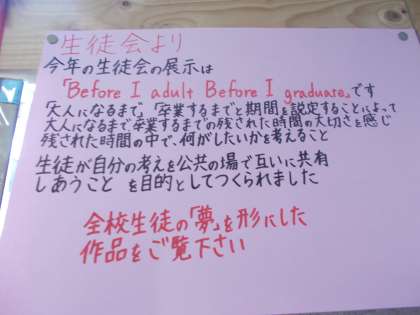 生徒会より
今年の生徒会の展示は
「Before I adult Before I graduate」です
「大人になるまで」「卒業するまでと期間を設定することによって
大人になるまで卒業するまでの残された時間の大切さを感じ
残された時間の中で、何がしたいかを考えること
生徒が自分の考えを公共の場で互いに共有
しあうこと を目的としてつくられました
全校生徒の「夢」を形にした
作品をご覧下さい